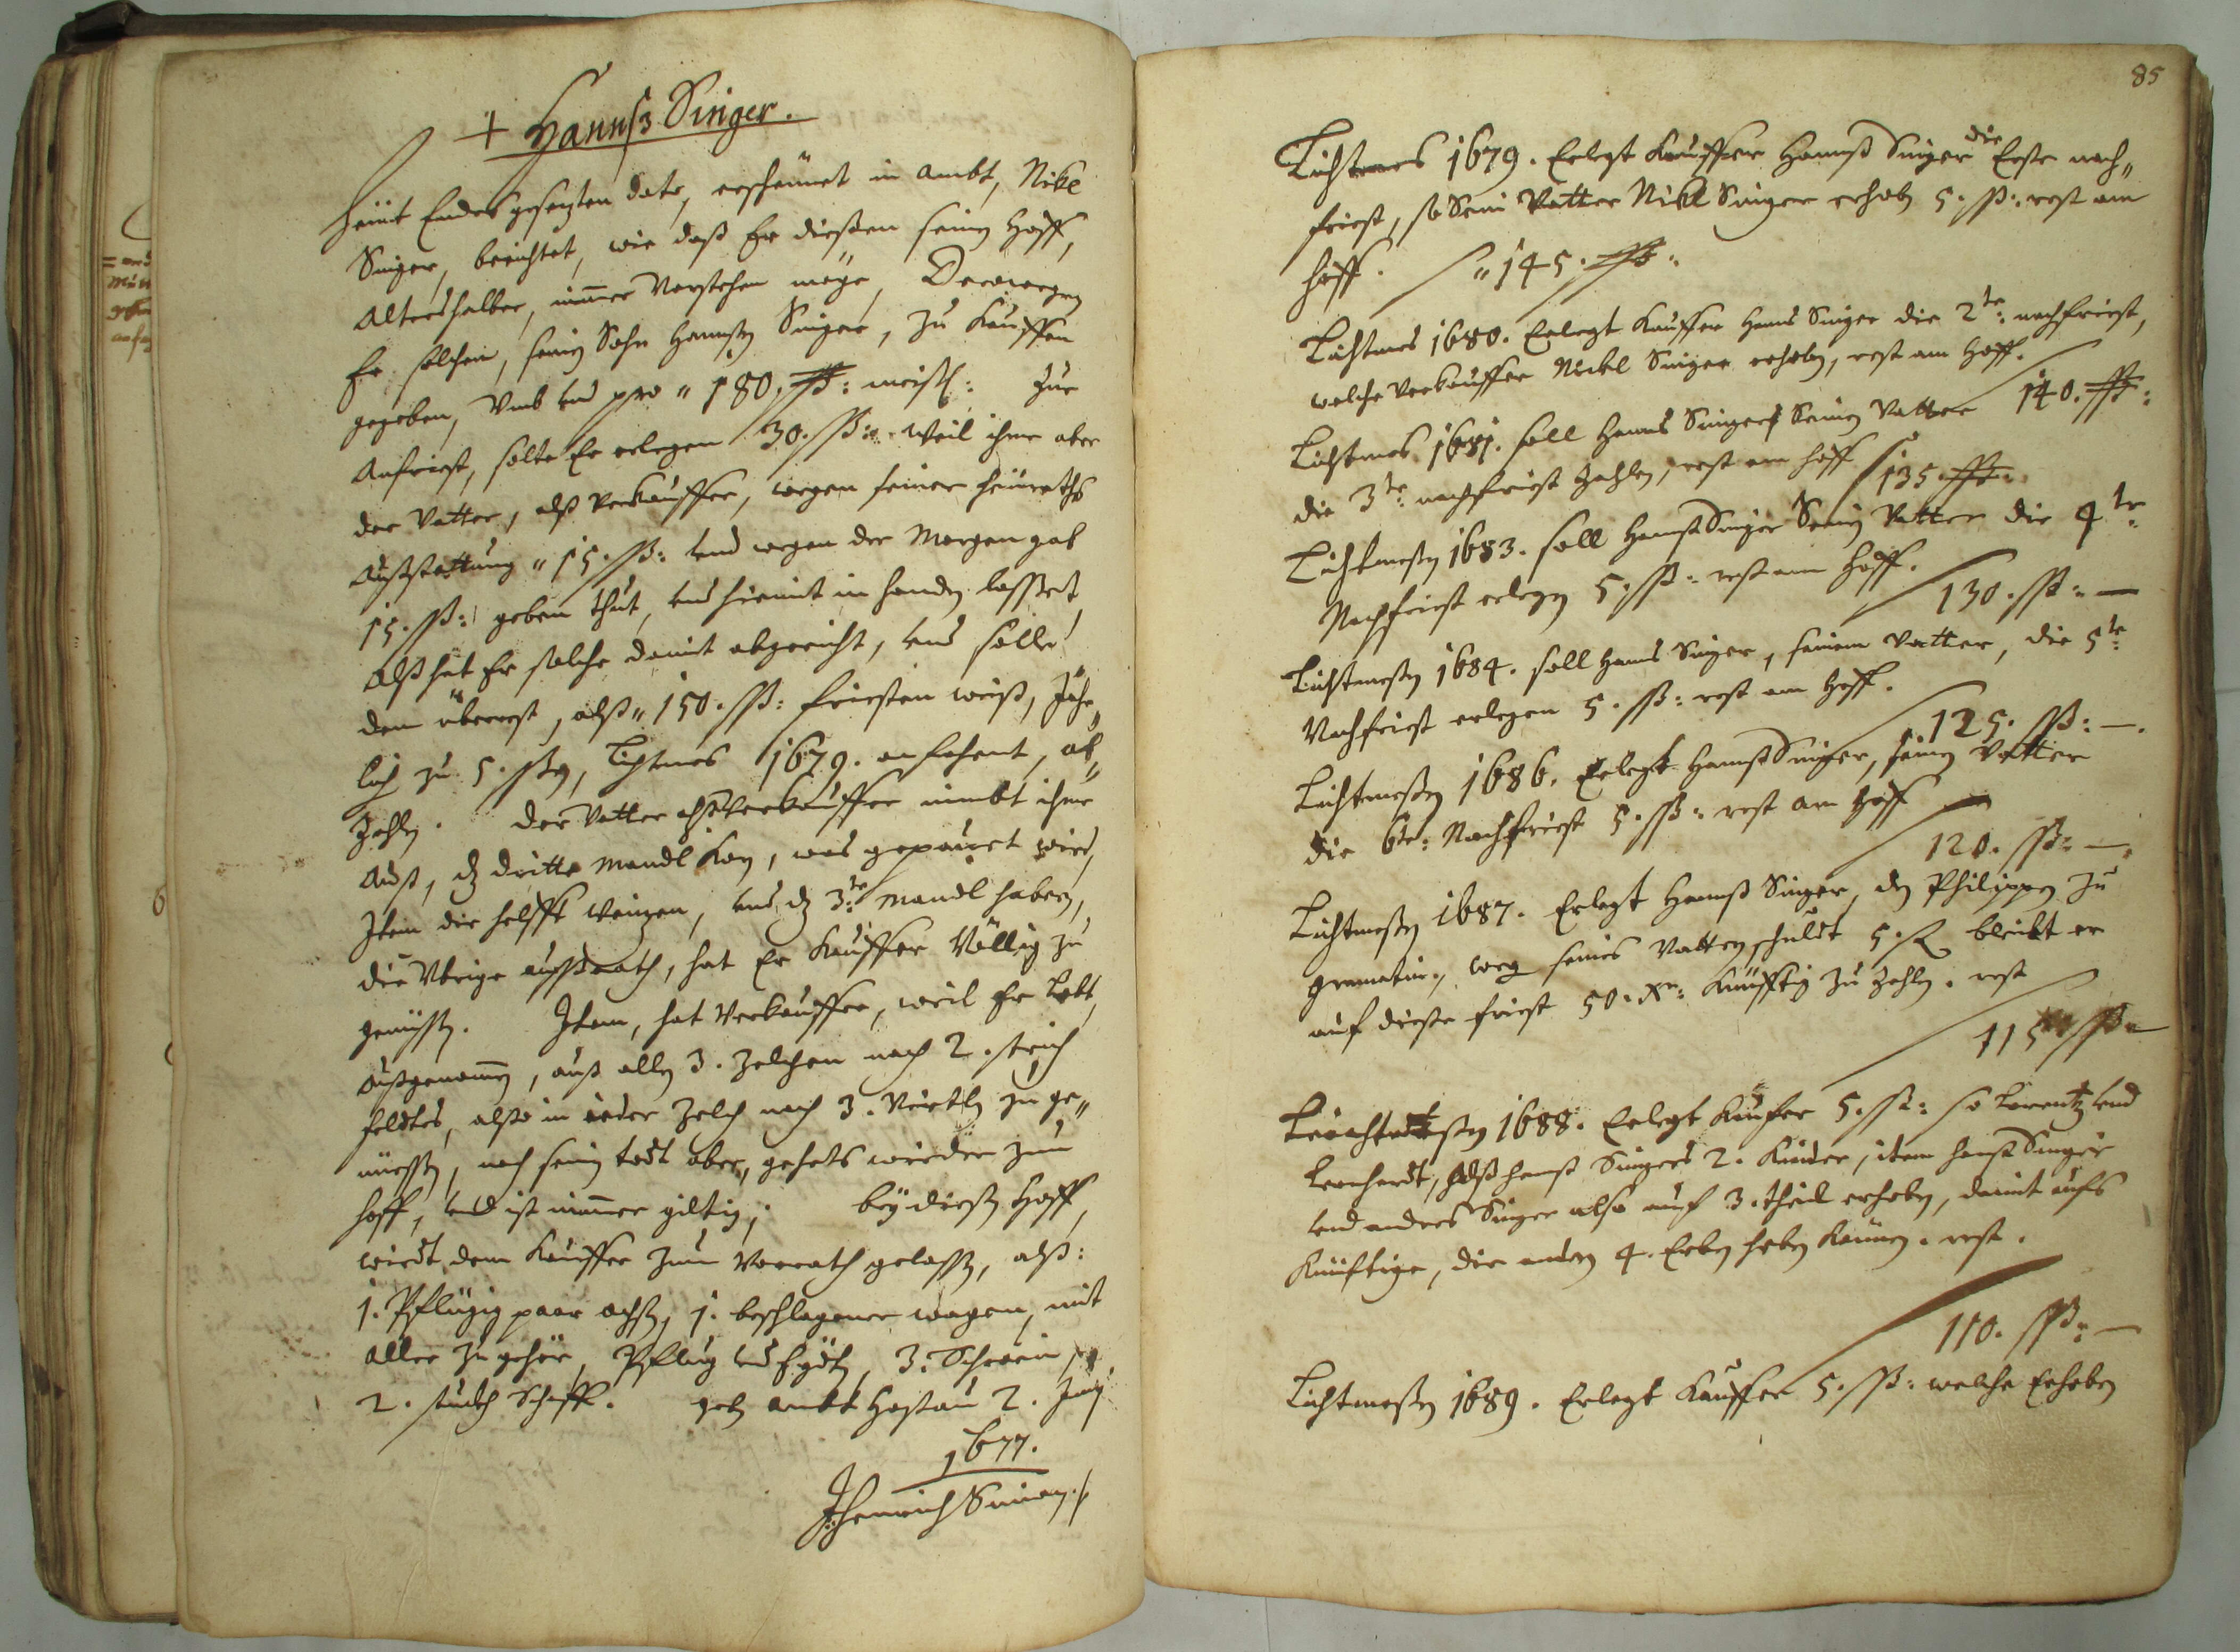 + Hannß Singer.
Heünt Endes gesezten dato, erscheinet in Ambt, Nikl
Singer, berichtet, wie daß Er dießen seinen Hoff,
Altershalber, nimmer Vorstehen möge, Derowegen
Er solchen, seinen Sohn Hannßen Singer, zu Kauffen
gegeben, Umb und pro 180. ß: meisl: Zur
Anfrist, solte Er erlegen 30. ß: Weil ihme aber
der Vatter, alß Verkauffer, wegen seiner heüraths
Außstattung 15. ß: und wegen der Morgengab
15. ß: geben thut, und hiemit in handen lasset,
Alß hat Er solche damit abgericht, und solle
den überrest, alß 150. ß: fristen weiß, Jähr„
lich zu 5. ßn, Lichtmes 1679. anfahent, ab„
Zahln. Der Vatter alß Verkauffer nimbt ihme
Auß, dz dritte Mandl Korn, was gepauet wird,
Item die helfft Weizen, und dz 3te Mandl habern,
die Übrige außsaath, hat Er Kauffer Völlig zu
genüßen. Item, hat Verkauffer, weil Er Lebt,
Außgenommen, auß allen 3. Zelchen nach 2. strich
feldtes, also in ieder Zelch nach 3. Viertln zu ge„
nüessen, nach seinen todt aber, gehets wieder zum
hoff, und ist nimmer giltig, bey diesen Hoff,
wirdt dem Kauffer zum Vorrath gelassen, alß:
1. Pflügig paar ochsen, 1. beschlagener wagen, mit
aller Zugehör, Pflug und Eydten, 3. Schwein,
2. stuckh Schaff. geben Ambt Hostau 2. Juny
1677.
Heinrich Simon
85
Lichtmes 1679. Erlegt Kauffer Hannß Singer die Erste nach„
frist, so Sein Vatter Nikl Singer erhebt 5. ß: rest am
hoff. 145. ß:
Lichtmes 1680. Erlegt Kauffer Hanns Singer die 2te: nachfrist,
welche Verkauffer Nickl Singer erhoben, rest am Hoff.
140. ß:
Lichtmes 1681. soll Hanns Singer Seinen Vatter
die 3te: nachfrist Zahlen, rest am hoff 135 ß:
Lichtmeßen 1683. soll Hannß Singer Seinen Vatter die 4te:
Nachfrist erlegen 5. ß: rest am Hoff.
130. ß: —
Lichtmeßen 1684. soll Hanns Singer, seinem Vatter, die 5te:
Nachfrist erlegen 5. ß: rest am Hoff.
125. ß: —.
Lichtmeßen 1686. Erlegt Hannß Singer, seinen Vatter
die 6te: Nachfrist 5. ß: rest am Hoff
120. ß: —.
Lichtmeßen 1687. Erlegt Hannß Singer, den Philippen zu
wegen seines Vattern schuldt 5. bleibt er
auf dieße frist 50. Xr: Künfftig zu zahlen. rest
115 ß: —
1688. Erlegt Kaufer 5. ß: so Lorentz und
Leonhardt, Hannß Singers 2. Kinder, item Hannß Singer
und andres Singer also auf 3. theil erhoben, damit aufs
Künftige, die andern 4. Erben heben Können. rest.
110. ß: —
Lichtmeßen 1689. Erlegt Kauffer 5. ß: welche Erheben